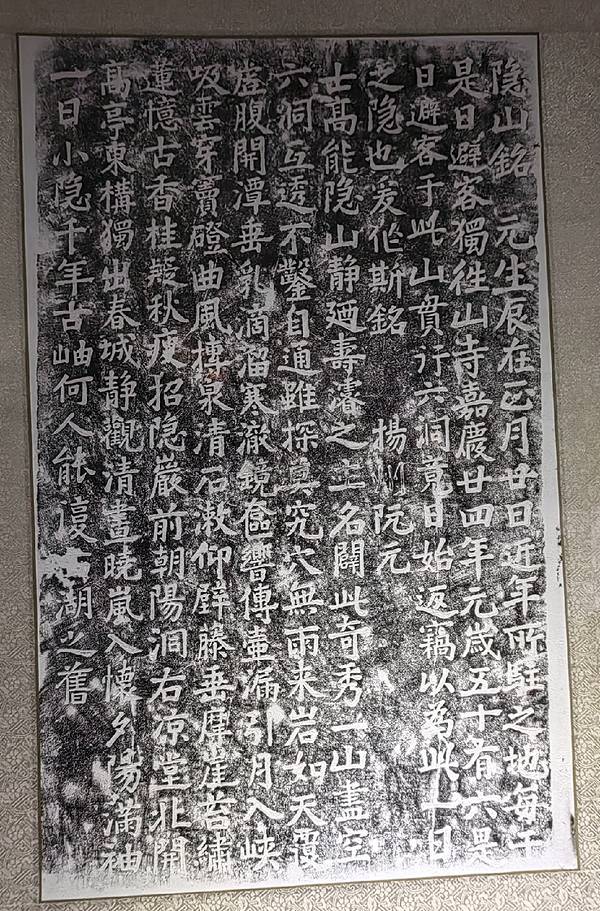 隐山銘 元生辰在正月廿日近年所駐之地每于
是日避客獨往山寺嘉慶廿四年元歲五十有六是
日避客于此山貫行六洞竟日始返竊以為此一日
之隐也爰作斯銘 揚州阮元
士高能隐山静迺壽濬之主名闢此奇秀一山盡空
六洞互透不鑿自通雖探莫究穴無雨来岩如天覆
虚腹開潭垂乳滴溜寒澈鏡奩響傳壷漏引月入峡
吸雲穿竇磴曲風摶泉清石漱仰壁藤垂摩崖苔繡
蓮憶古香桂疑秋瘦招隐巖前朝陽洞右凉堂北開
髙亭東構獨出春城静觀清晝曉嵐入懷夕陽滿袖
一日小隐千年古岫何人能復 湖之舊